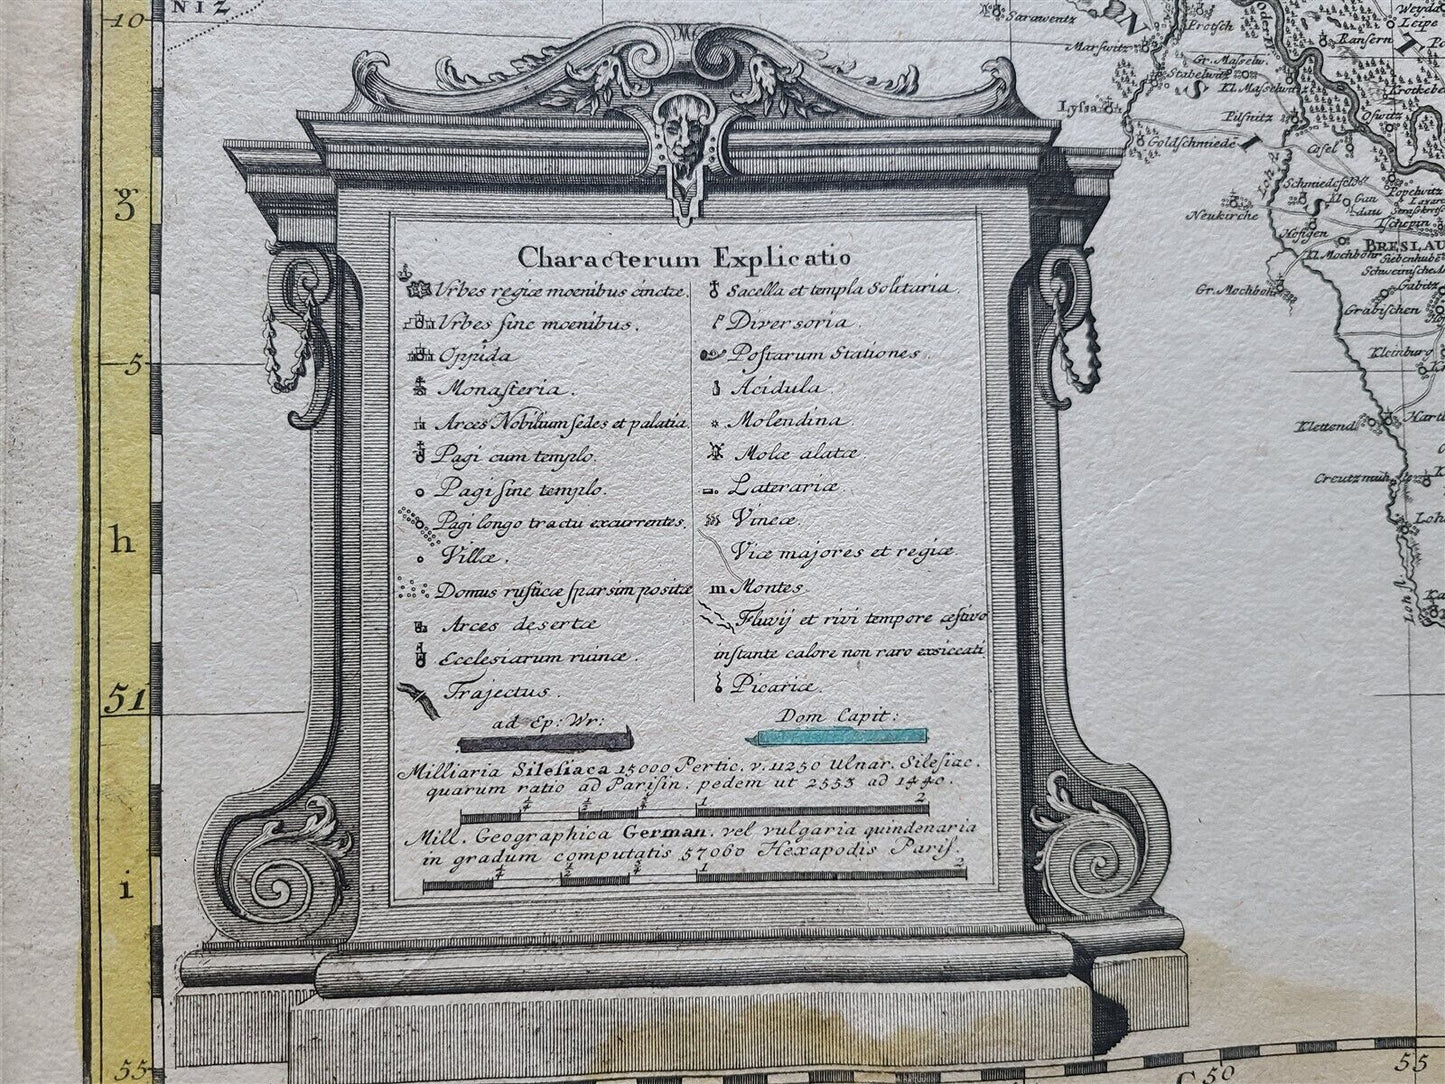 NIZ
10
g
5
h
51
i
55
Characterum Explicatio
Vrbes regiæ moenibus cinctæ.
Vrbes sine moenibus.
Oppida
Monasteria.
Arces Nobilium sedes et palatia.
Pagi cum templo.
Pagi sine templo.
Pagi longo tractu excurrentes.
Villæ.
Domus rusticæ sparsim positæ
Arces desertæ
Ecclesiarum ruinæ.
Trajectus.
Sacella et templa Solitaria.
Diversoria.
Postarum Stationes.
Acidula.
Molendina.
Molæ alatæ.
Laterariæ.
Vineæ.
Viæ majores et regiæ.
m Montes.
Fluvij et rivi tempore æstivo
instante calore non raro exsiccati
Picariæ.
ad Ep: Wr:
Dom Capit:
Milliaria Silesiaca 15000 Pertic. v. 11250 Ulnar. Silesiac.
quarum ratio ad Parisin. pedem ut 2553 ad 1440.
1/4 1/2 3/4 1 2
Mill. Geographica German. vel vulgaria quindenaria
in gradum computatis 57060 Hexapodis Paris.
1/4 1/2 3/4 1 2
Sarawentz
Protsch
Weyda
Leipe
Ransern
Marswitz
Gr. Masselw.
Stabelwitz
Kl. Masselwitz
Lyssa
Pilsnitz
Oswitz
Goldschmiede
Cosel
Loh fl.
Schmiedefeld
Popelwitz
Neukirche
Kl. Gan
dau
Hofigen
Tschepin
BRESLAU
Kl. Mochbohr
Siebenhube
Gr. Mochbohr
Gabitz
Grabischen
Kleinburg
Klettend
Hartl
Creutzmüh
Loh
Loh fl.
50
55